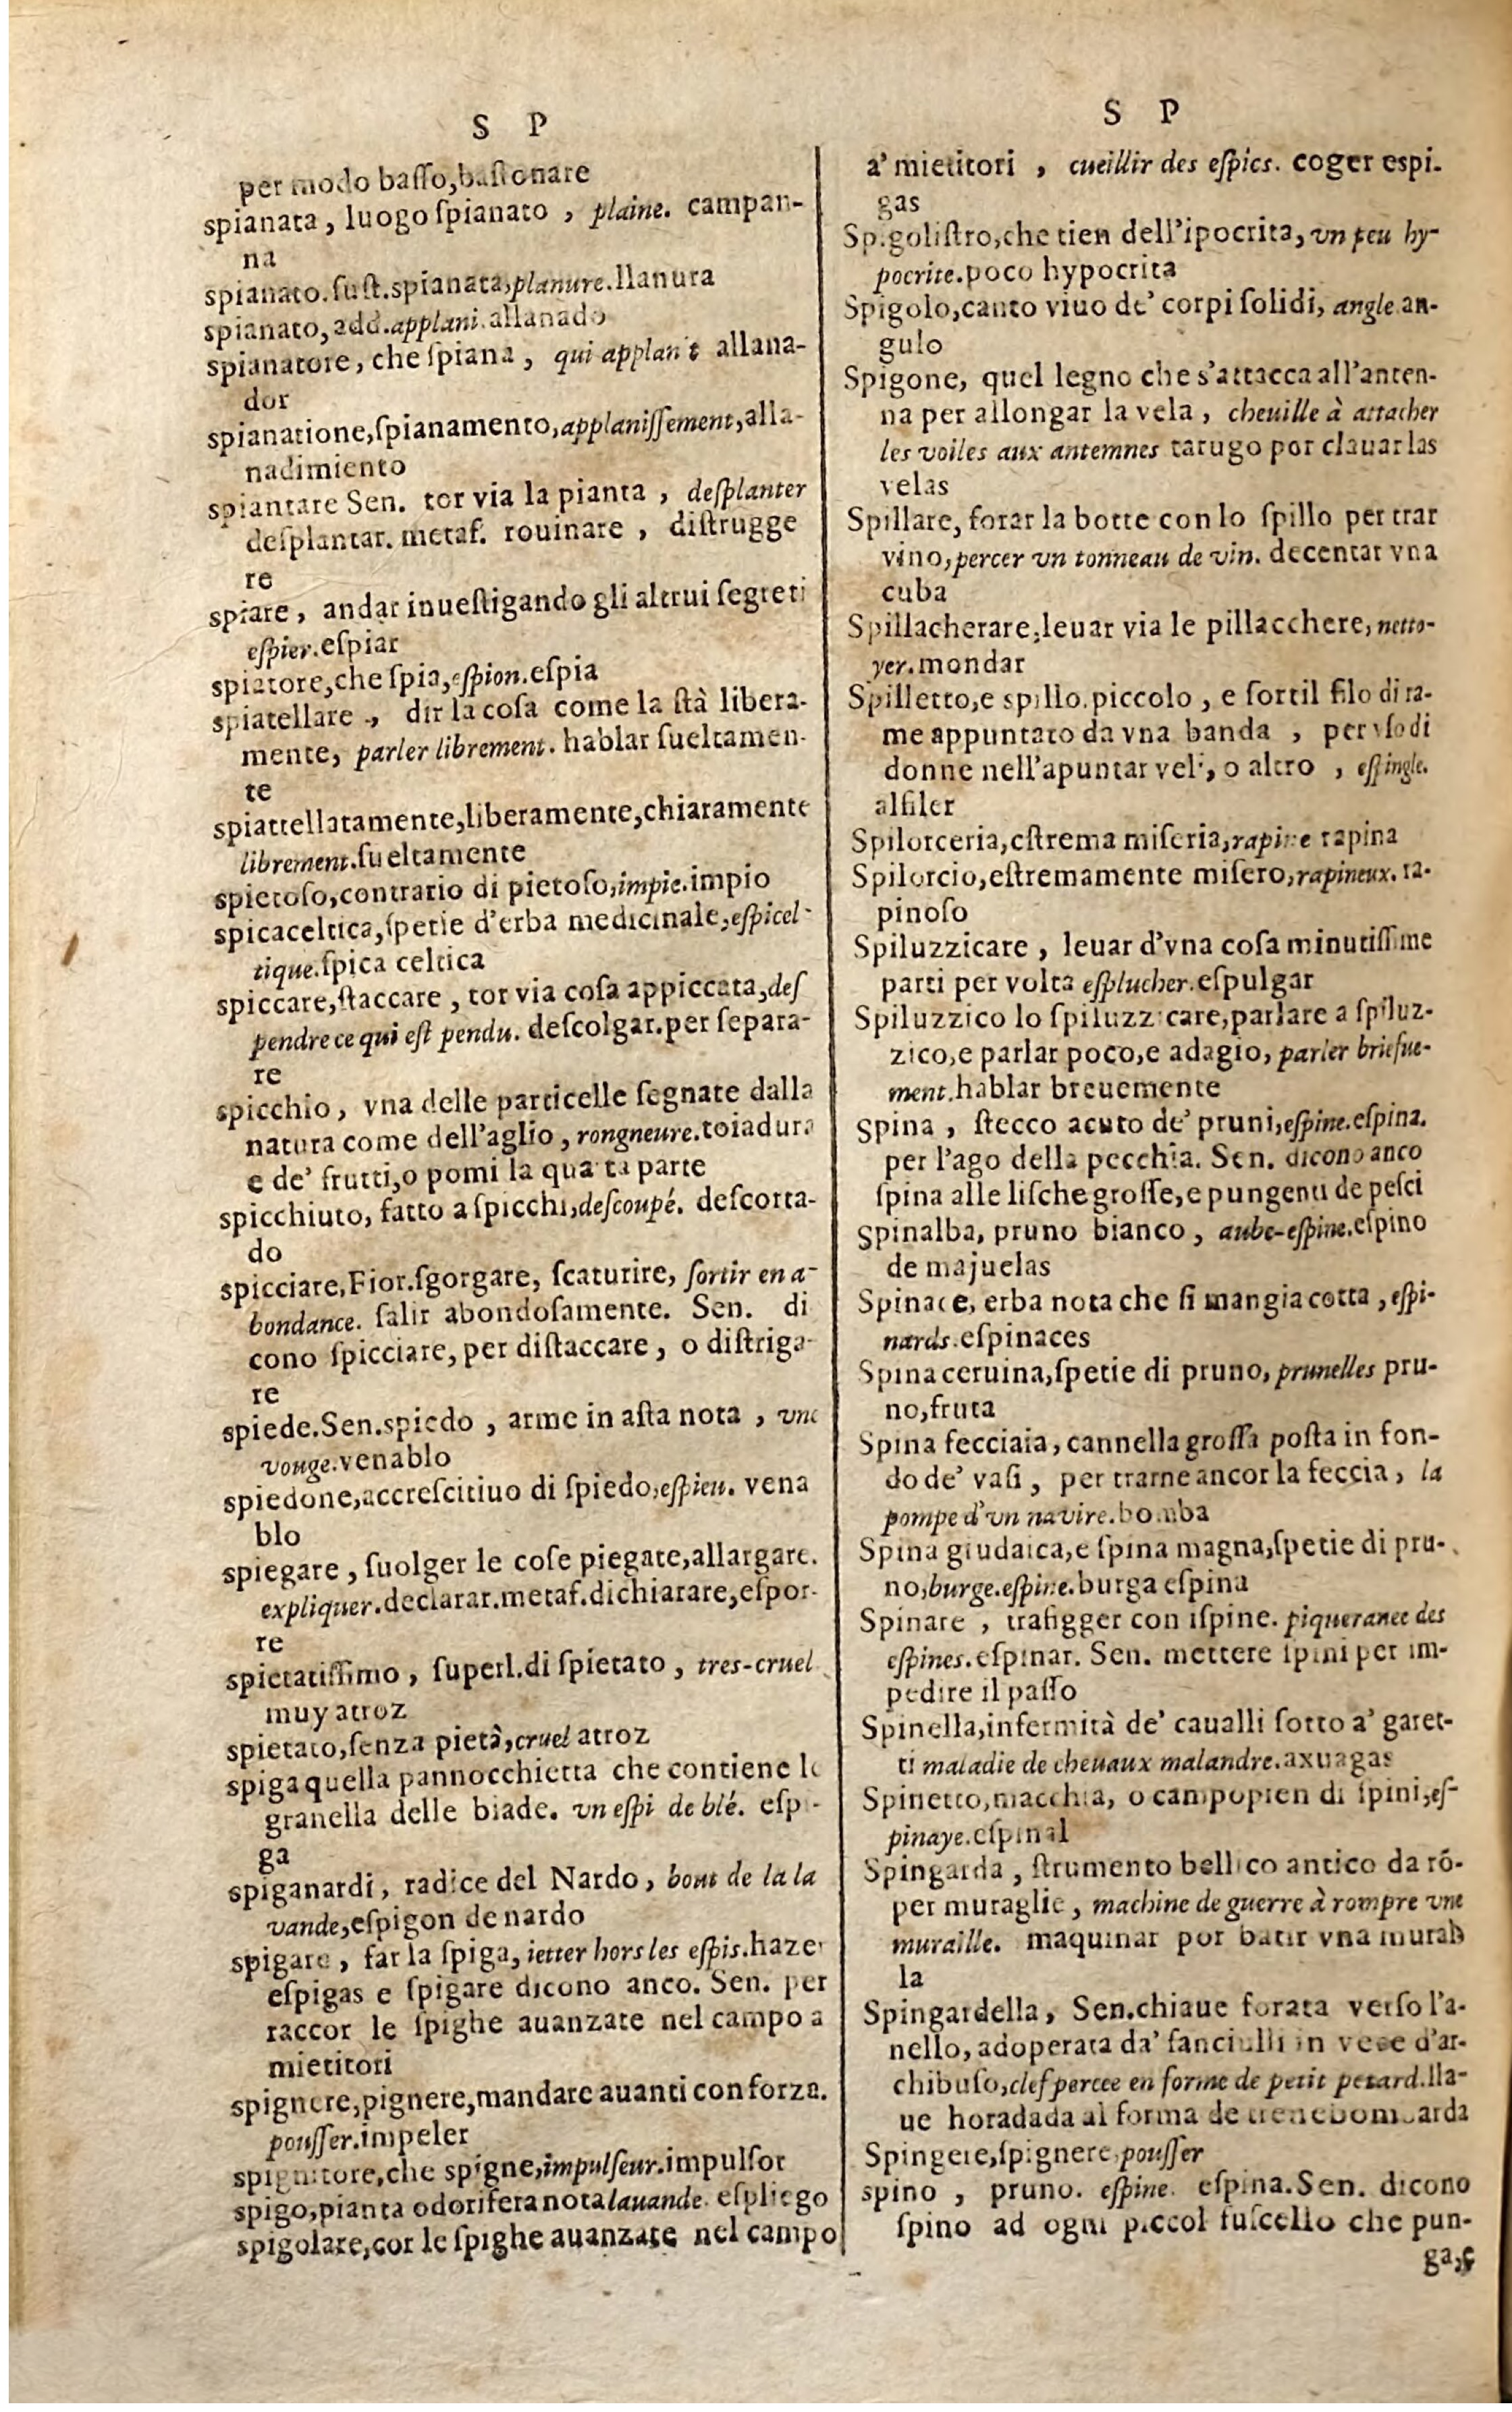 S P
per modo baſſo,baſtonare
spianata, luogo ſpianato, plaine. campan-
na
spianato.ſuſt.spianata,planure.llanura
spianato,add.applani.allanado
spianatore, che ſpiana, qui applanit allana-
dor
spianatione,ſpianamento,applaniſſement,alla-
nadimiento
spiantare Sen. tor via la pianta, deſplanter
deſplantar. metaf. rouinare, diſtrugge
re
spiare, andar inueſtigando gli altrui ſegreti
eſpier.eſpiar
spiatore,che ſpia,eſpion.eſpia
spiatellare, dir la coſa come la ſtà libera-
mente, parler librement. hablar ſueltamen-
te
spiattellatamente,liberamente,chiaramente
librement.ſueltamente
spietoſo,contrario di pietoſo,impie.impio
spicaceltica,ſpetie d'erba medicinale,eſpicel-
tique.ſpica celtica
spiccare,ſtaccare, tor via coſa appiccata,deſ
pendre ce qui eſt pendu. deſcolgar.per ſepara-
re
spicchio, vna delle particelle ſegnate dalla
natura come dell'aglio, rongneure.toiadura
e de' frutti,o pomi la quarta parte
spicchiuto, fatto a ſpicchi,deſcoupé. deſcorta-
do
spicciare,Fior.ſgorgare, ſcaturire, ſortir en a-
bondance. ſalir abondoſamente. Sen. di
cono ſpicciare, per diſtaccare, o diſtriga-
re
spiede.Sen.spiedo, arme in aſta nota, vne
vouge.venablo
spiedone,accreſcitiuo di ſpiedo,eſpieu. vena
blo
spiegare, ſuolger le coſe piegate,allargare.
expliquer.declarar.metaf.dichiarare,eſpor-
re
spietatiſſimo, ſuperl.di ſpietato, tres-cruel
muy atroz
spietato,ſenza pietà,cruel atroz
spiga quella pannocchietta che contiene le
granella delle biade. vn eſpi de blé. eſpi-
ga
spiganardi, radice del Nardo, bout de la la
vande,eſpigon de nardo
spigare, far la ſpiga, ietter hors les eſpis.hazer
eſpigas e ſpigare dicono anco. Sen. per
raccor le ſpighe auanzate nel campo a
mietitori
spignere,pignere,mandare auanti con forza.
pouſſer.impeler
spignitore,che spigne,impulſeur.impulſor
spigo,pianta odorifera nota lauande. eſpliego
spigolare,cor le ſpighe auanzate nel campo
S P
a' mietitori, cueillir des eſpics. coger espi-
gas
Spigoliſtro,che tien dell'ipocrita, vn peu hy-
pocrite.poco hypocrita
Spigolo,canto viuo de' corpi ſolidi, angle an-
gulo
Spigone, quel legno che s'attacca all'anten-
na per allongar la vela, cheuille à attacher
les voiles aux antemnes tarugo por clauar las
velas
Spillare, forar la botte con lo ſpillo per trar
vino,percer vn tonneau de vin. decentar vna
cuba
Spillacherare,leuar via le pillacchere, netto-
yer.mondar
Spilletto,e spillo.piccolo, e ſottil filo di ra-
me appuntato da vna banda, per vſo di
donne nell'apuntar veli, o altro, eſpingle.
alfiler
Spilorceria,eſtrema miſeria,rapine rapina
Spilorcio,eſtremamente miſero,rapineux. ra-
pinoſo
Spiluzzicare, leuar d'vna coſa minutiſſime
parti per volta eſplucher.eſpulgar
Spiluzzico lo ſpiluzzicare,parlare a ſpiluz-
zico,e parlar poco,e adagio, parler briefue-
ment.hablar breuemente
Spina, ſtecco acuto de' pruni,eſpine.eſpina.
per l'ago della pecchia. Sen. dicono anco
ſpina alle liſche groſſe,e pungenti de peſci
Spinalba, pruno bianco, aube-eſpine.eſpino
de majuelas
Spinace, erba nota che ſi mangia cotta, eſpi-
nards.eſpinaces
Spina ceruina,ſpetie di pruno, prunelles pru-
no,fruta
Spina fecciaia, cannella groſſa poſta in fon-
do de' vaſi, per trarne ancor la feccia, la
pompe d'vn navire.bomba
Spina giudaica,e ſpina magna,ſpetie di pru-
no,burge.eſpine.burga eſpina
Spinare, trafigger con iſpine. piquer auec des
eſpines.eſpinar. Sen. mettere ſpini per im-
pedire il paſſo
Spinella,infermità de' caualli ſotto a' garet-
ti maladie de cheuaux malandre.axuagas
Spinetto,macchia, o campo pien di ſpini,eſ-
pinaye.eſpinal
Spingarda, ſtrumento bellico antico da rõ-
per muraglie, machine de guerre à rompre vne
muraille. maquinar por batir vna mural
la
Spingardella, Sen.chiaue forata verſo l'a-
nello, adoperata da' fanciulli in vece d'ar-
chibuſo,clef percee en forme de petit petard.lla-
ue horadada al forma de
Spingere,ſpignere,pouſſer
spino, pruno. eſpine. eſpina.Sen. dicono
ſpino ad ogni piccol fuſcello che pun-
ga,e